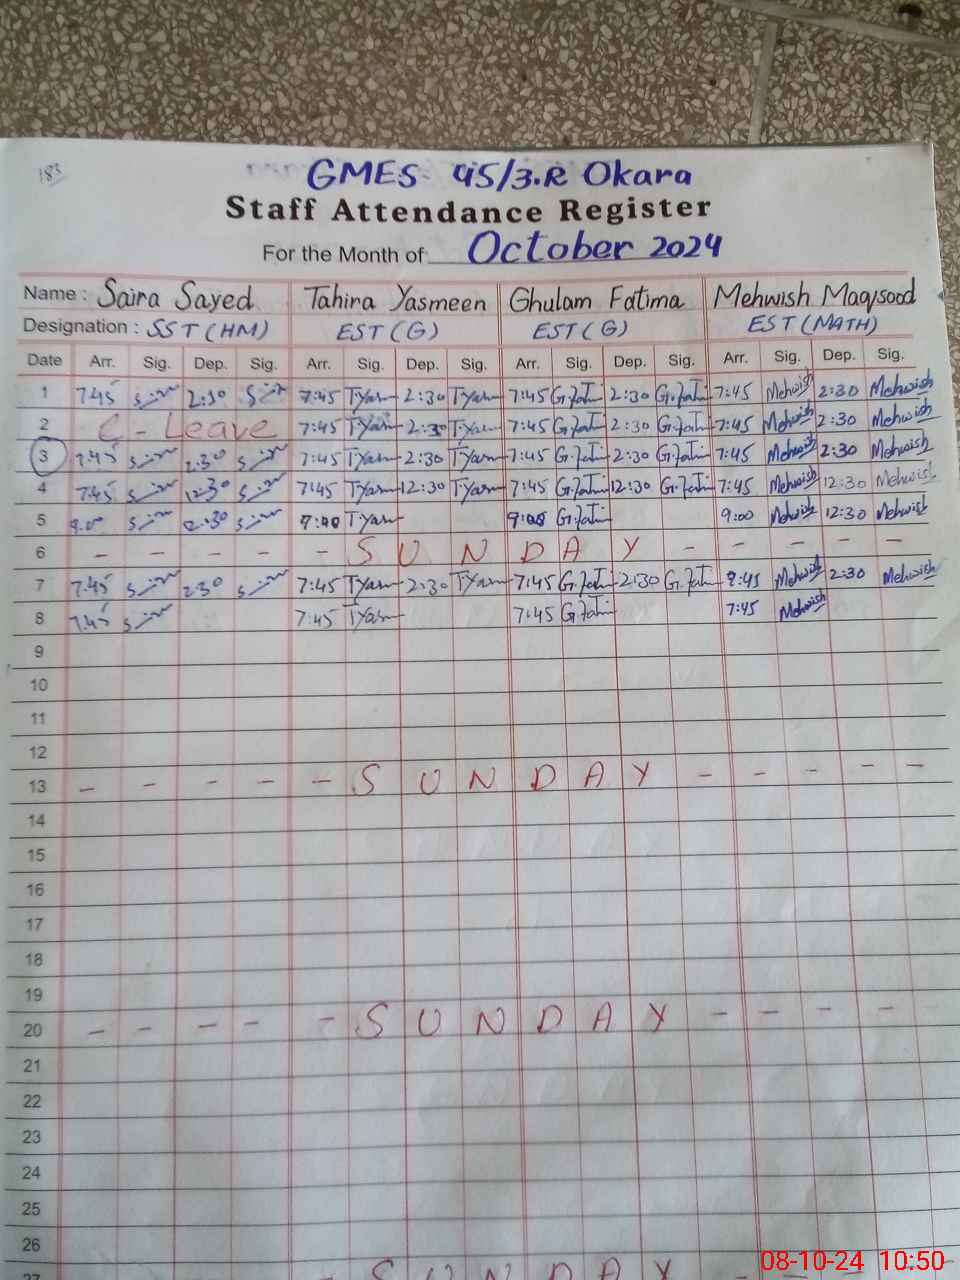 183
GMES 45/3.R Okara
Staff Attendance Register
For the Month of October 2024
Name : Saira Sayed Tahira Yasmeen Ghulam Fatima Mehwish Maqsood
Designation : SST (HM) EST (G) EST (G) EST (MATH)
Date Arr. Sig. Dep. Sig. Arr. Sig. Dep. Sig. Arr. Sig. Dep. Sig. Arr. Sig. Dep. Sig.
1 7.45 2:30 7:45 T.Yasm 2:30 T.Yasm 7:45 G.Fati 2:30 G.Fati 7:45 Mehwish 2:30 Mehwish
2 C - Leave 7:45 T.Yasm 2:30 T.Yasm 7:45 G.Fati 2:30 G.Fati 7:45 Mehwish 2:30 Mehwish
3 7.45 2:30 7:45 T.Yasm 2:30 T.Yasm 7:45 G.Fati 2:30 G.Fati 7:45 Mehwish 2:30 Mehwish
4 7.45 12:30 7:45 T.Yasm 12:30 T.Yasm 7:45 G.Fati 12:30 G.Fati 7:45 Mehwish 12:30 Mehwish
5 9.00 12:30 9:00 T.Yasm 9:00 G.Fati 9:00 Mehwish 12:30 Mehwish
6 - - - - - S U N D A Y - - - - -
7 7.45 2:30 7:45 T.Yasm 2:30 T.Yasm 7:45 G.Fati 2:30 G.Fati 7:45 Mehwish 2:30 Mehwish
8 7.45 7:45 T.Yasm 7:45 G.Fati 7:45 Mehwish
9
10
11
12
13 - - - - - S U N D A Y - - - - -
14
15
16
17
18
19
20 - - - - - S U N D A Y - - - -
21
22
23
24
25
26
27 S U N D A Y
08-10-24 10:50